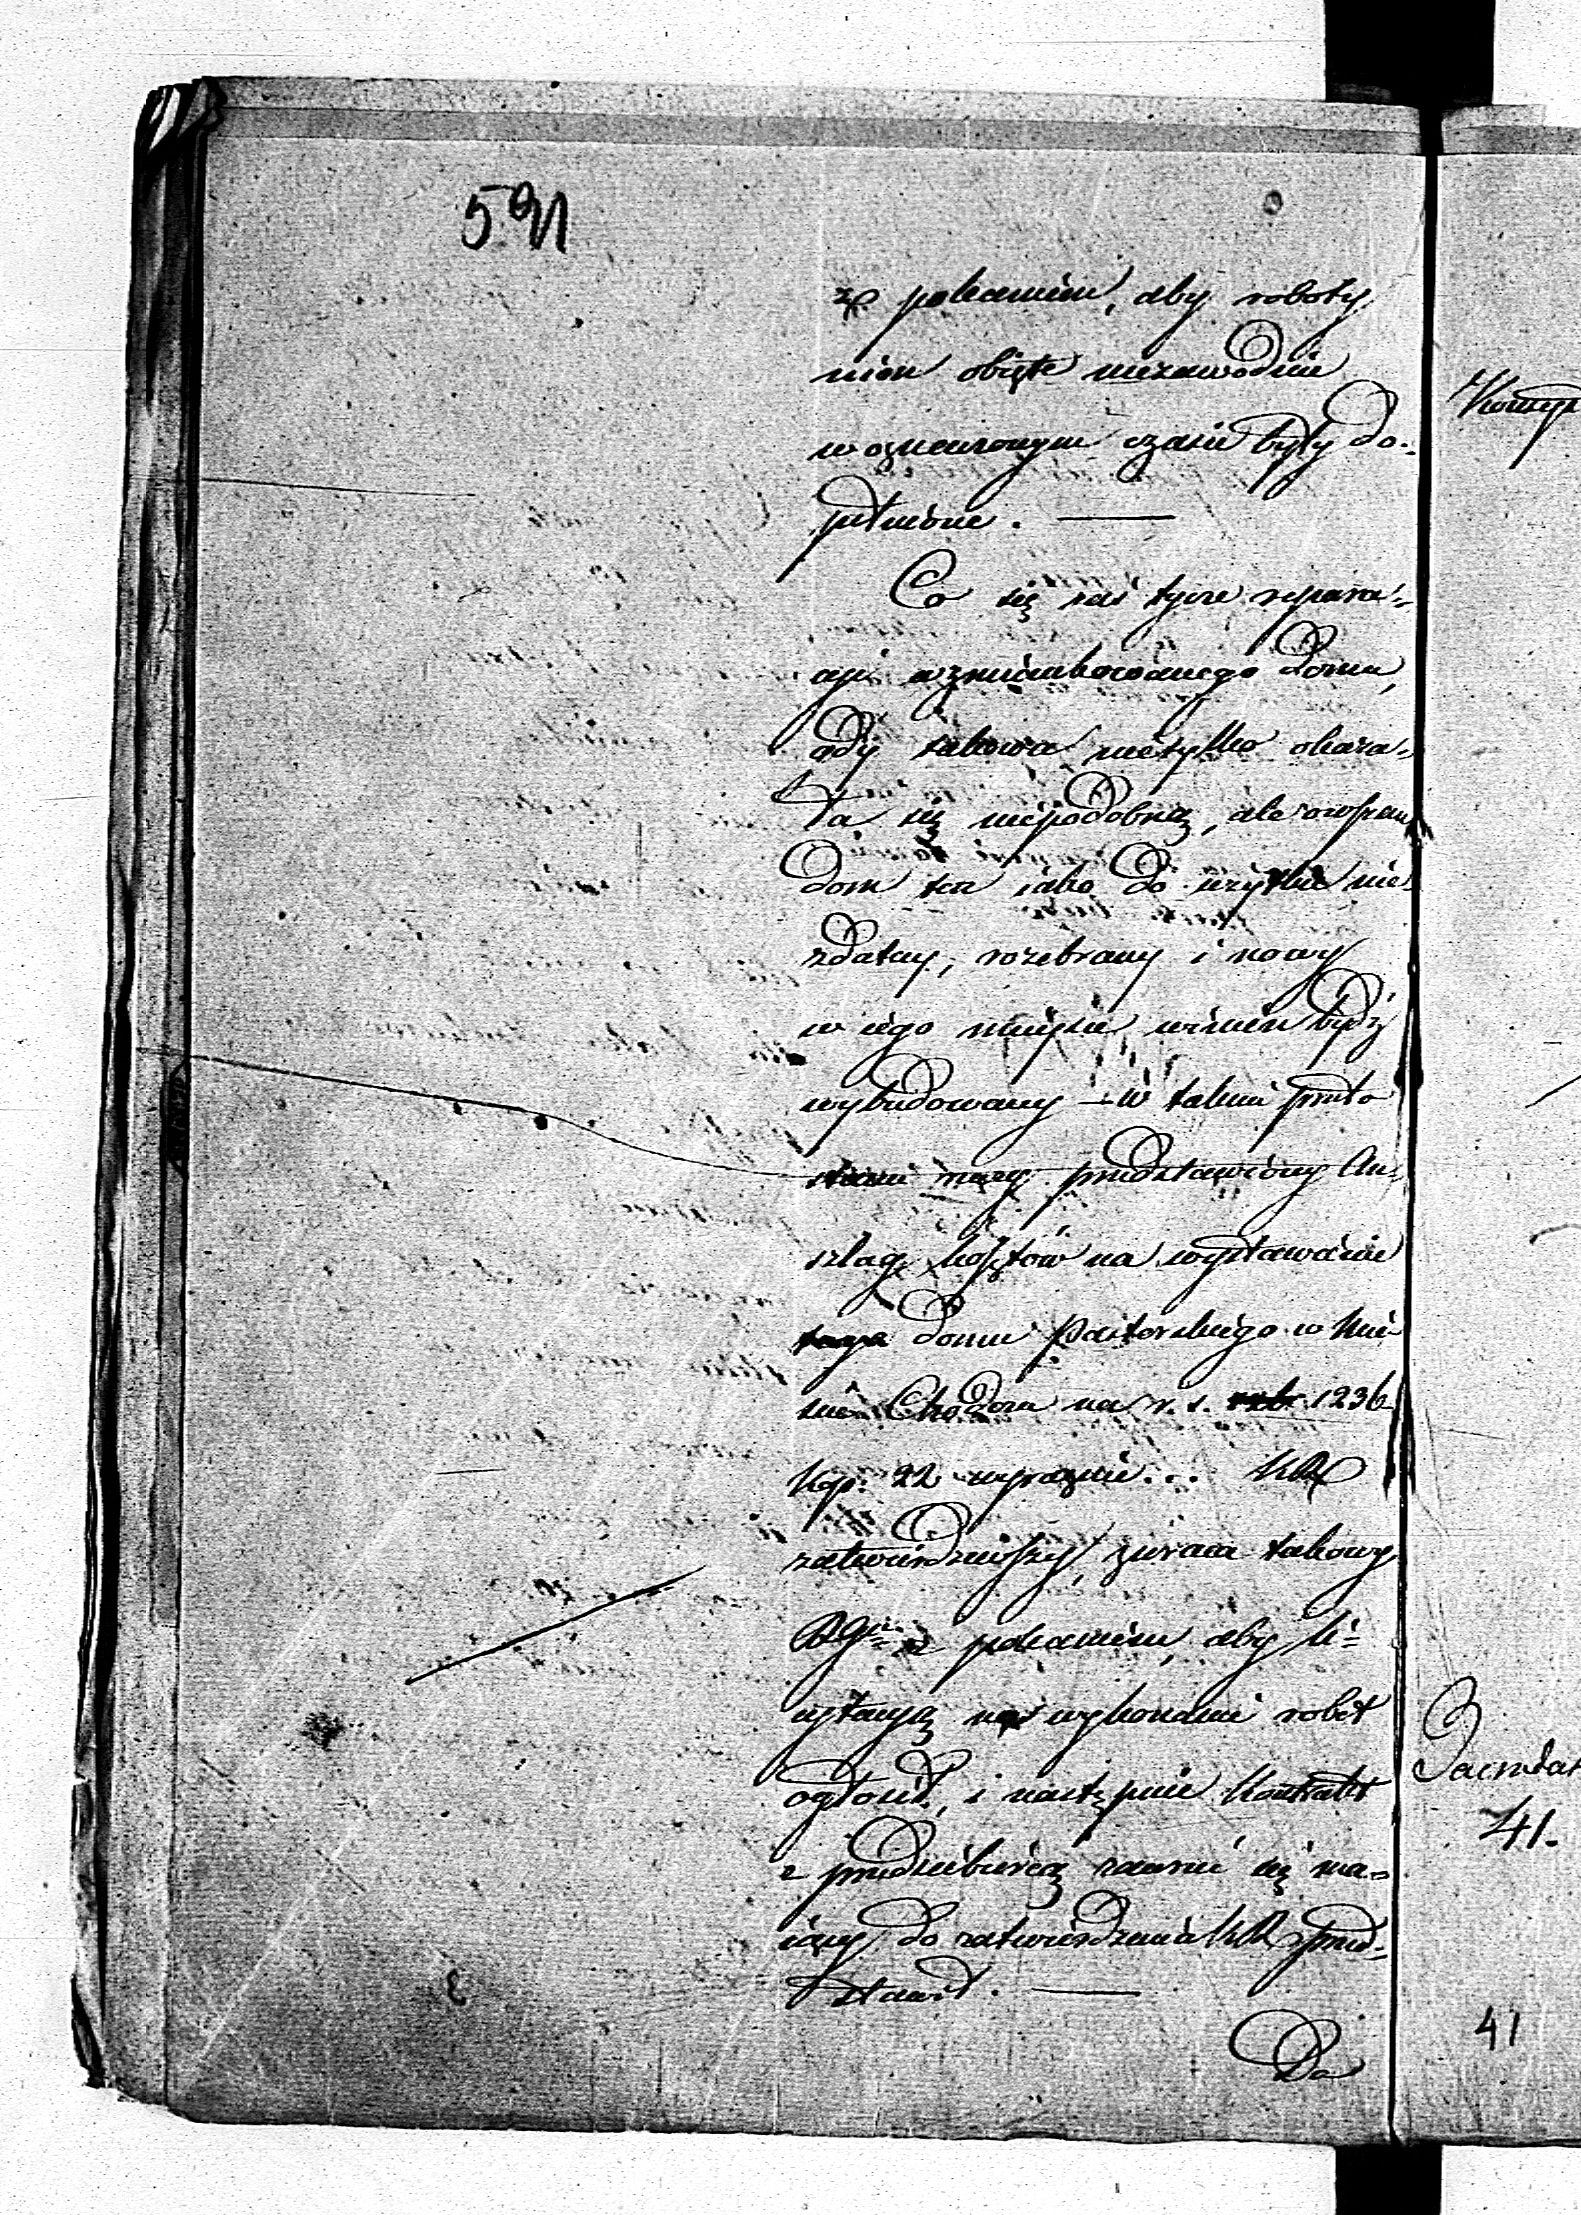 591
z poleceniem, aby roboty
niem obięte niezawodnie
w oznaczonym czasie były do-
pełnione. —
Co się zaś tycze repara-
cyi wzmiankowanego Domu,
gdy takowa nietylko okaza-
ła się niepodobną, ale owszem
Dom ten iako do użytku nie
zdatny, rozebrany i nowy
w iego mieysce winien bydź
wybudowany — w takim przeto
stanie rzeczy przedstawiony An-
szlag kosztów na wystawienie
Domu Pastorskiego w Mie
ście Chodczu na r. s. 1236
kop. 22 wyraźnie... KR
zatwierdziwszy, zwraca takowy
z poleceniem, aby li-
cytacyą na wykonanie robót
ogłosił, i następnie Kontrakt
z przedsiębiercą zawrzeć się ma-
iący do zatwierdzenia KR przed-
stawił. —
Do
41.
41